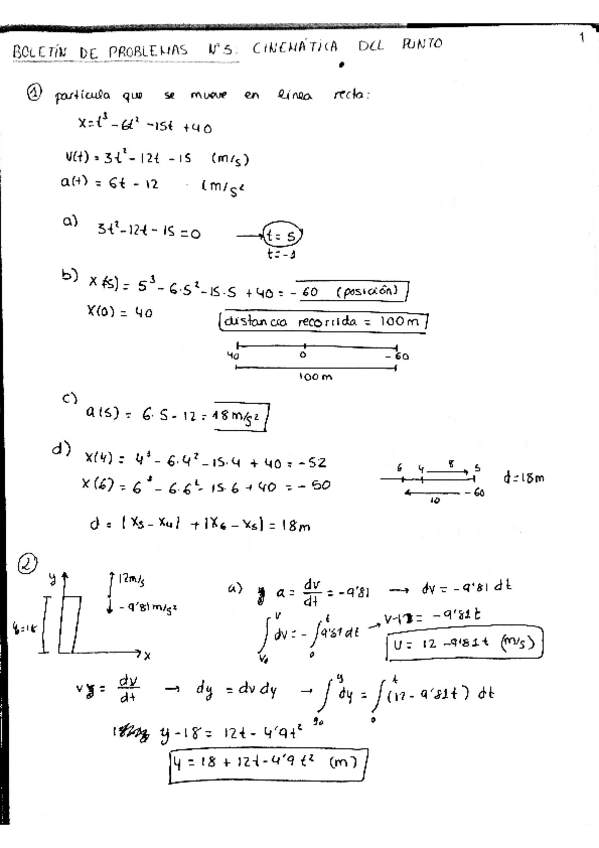 1
BOLETÍN DE PROBLEMAS Nº5: CINEMÁTICA DEL PUNTO
① partícula que se mueve en línea recta:
x=t³-6t²-15t+40
v(t)=3t²-12t-15 (m/s)
a(t)=6t-12 (m/s²
a) 3t²-12t-15=0 → t=5
t=-1
b) x(5)=5³-6·5²-15·5+40=-60 (posición)
x(0)=40 distancia recorrida = 100m
40 0 -60
100m
c) a(5)=6·5-12=18m/s²
d) x(4)=4³-6·4²-15·4+40=-52
x(6)=6³-6·6²-15·6+40=-50
6 4 8 5
10 -60 d=18m
d=|x5-x4|+|x6-x5|=18m
② y 12m/s
-9'81m/s²
x
a) y a=dv/dt=-9'81 → dv=-9'81dt
∫dv=-∫9'81dt → v-12=-9'81t
v=12-9'81t (m/s)
vy=dv/dt → dy=dvdy → ∫dy=∫(12-9'81t)dt
y-18=12t-4'9t²
y=18+12t-4'9t² (m)